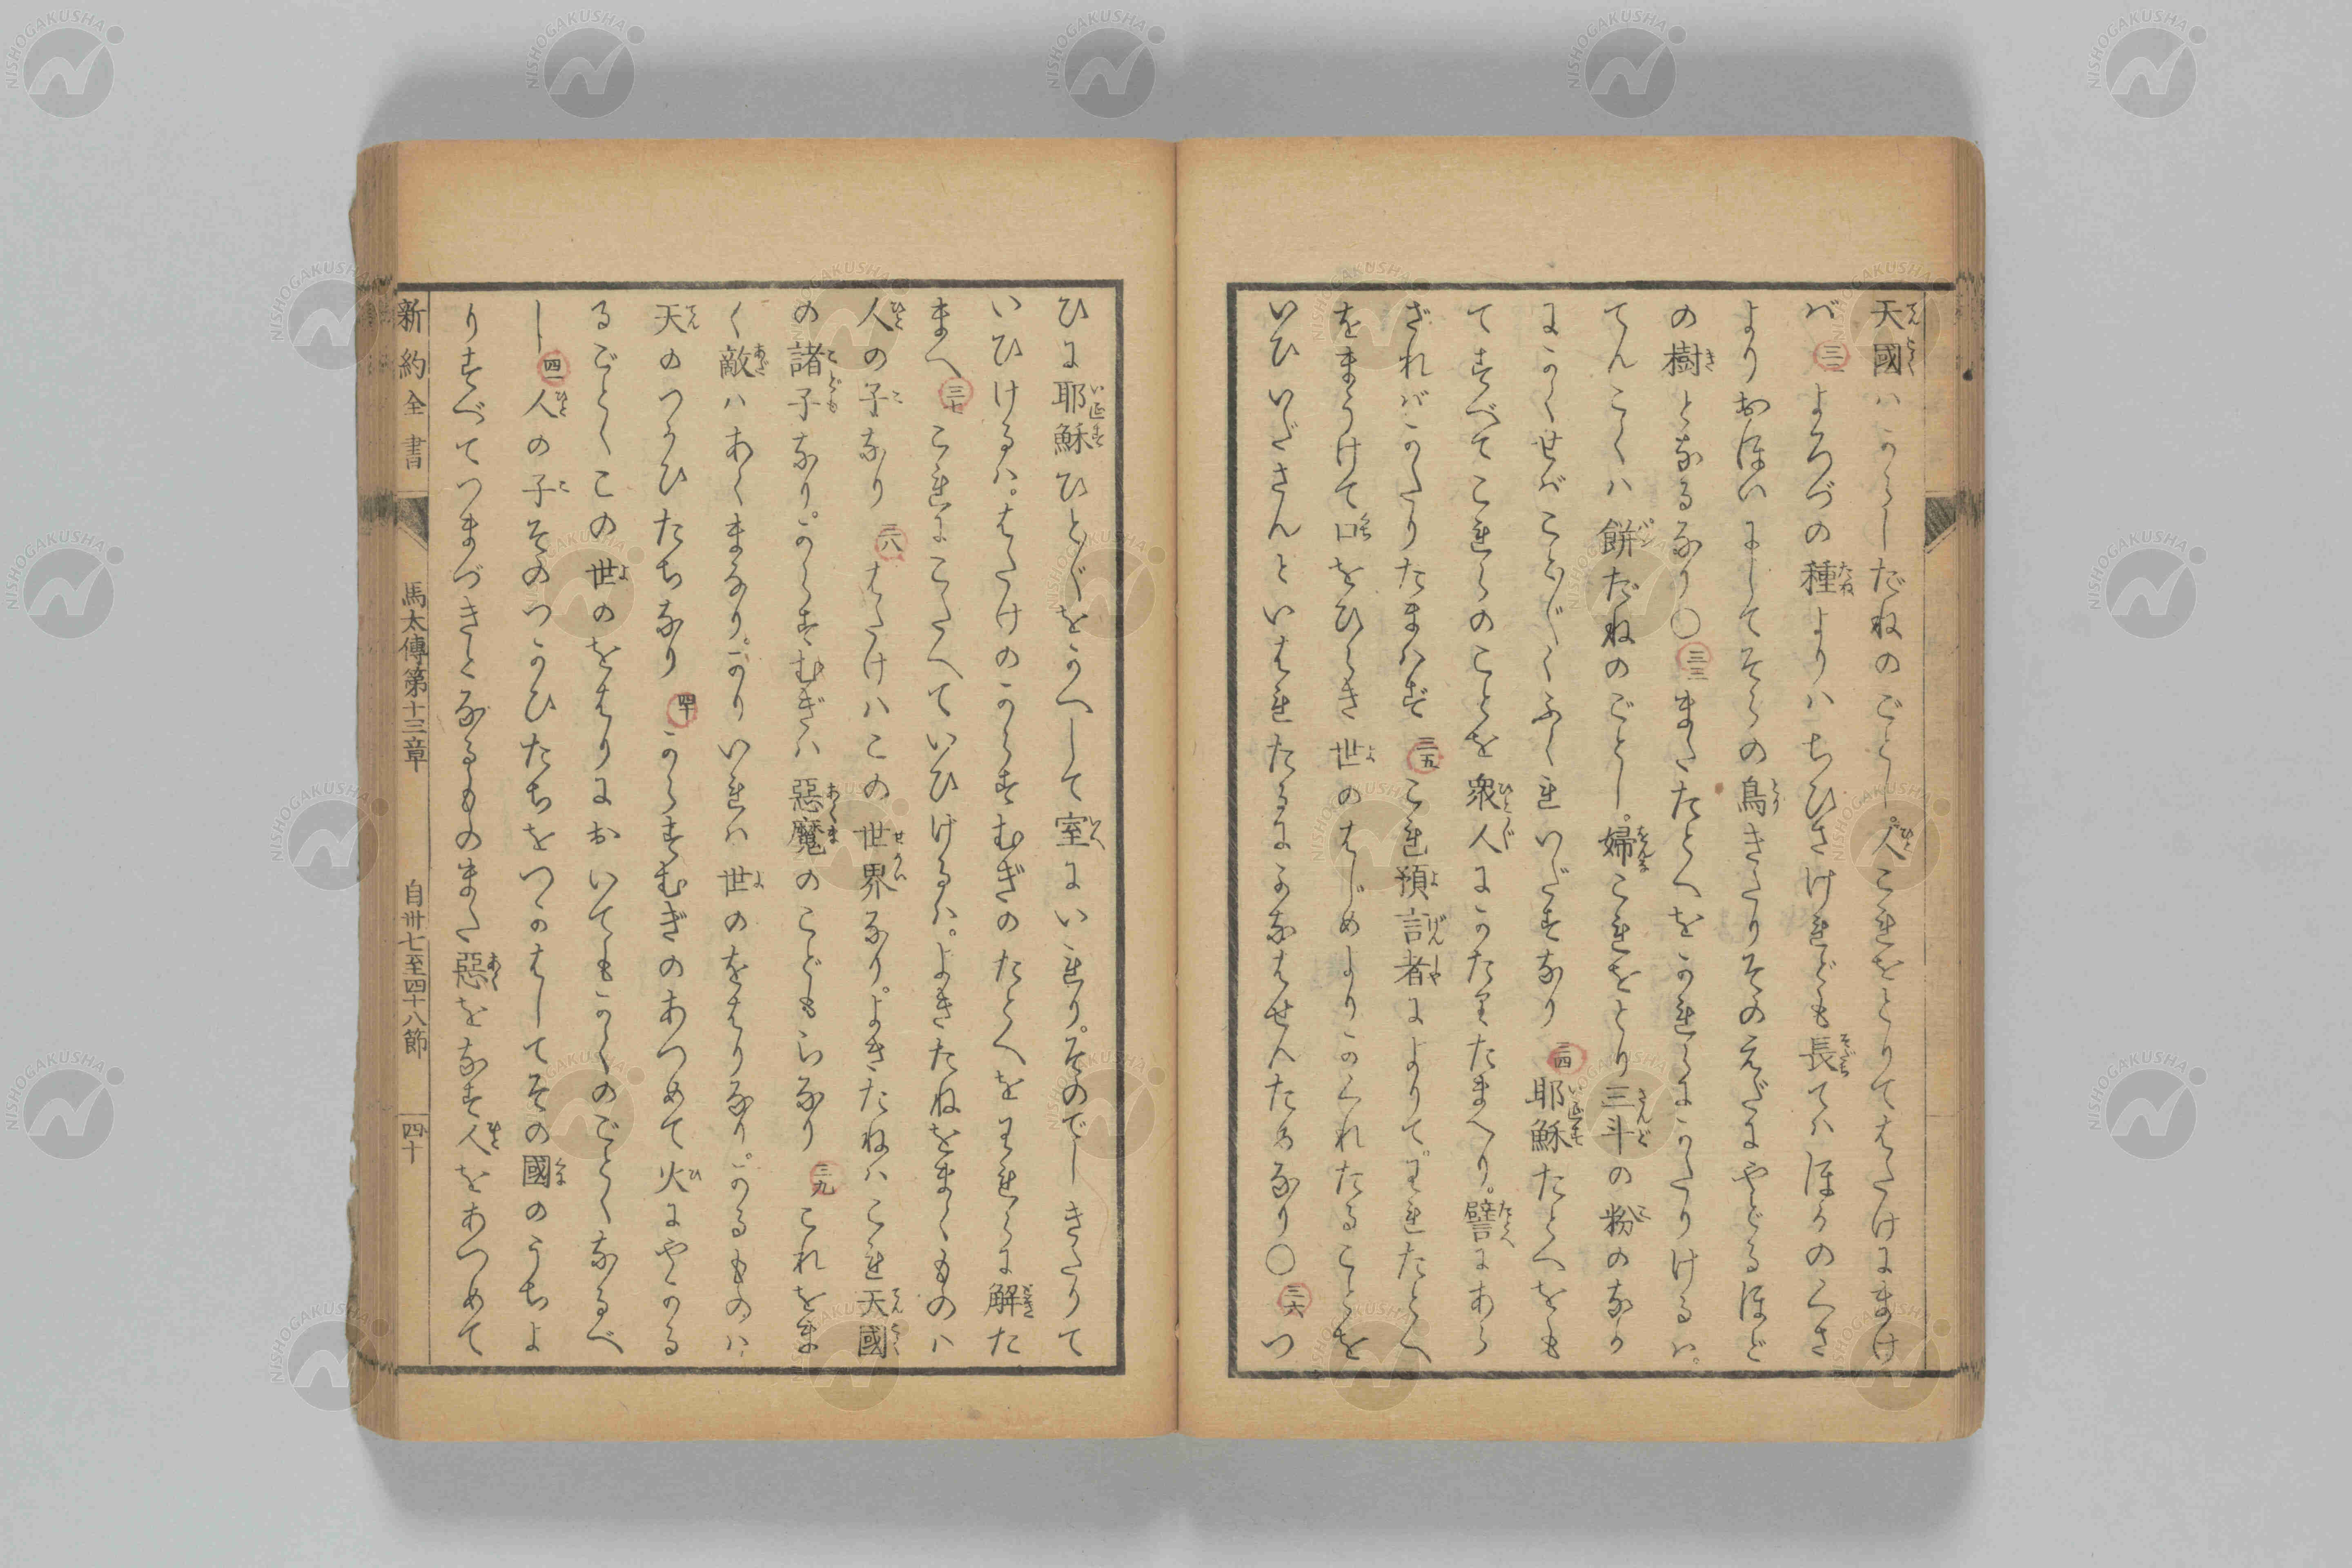 天國ハからしだねのごとし。人これをとりてはたけにまけ
バ 三二 よろづの種よりハちひさけれども長てハほかのくさ
よりおほいにしてそらの鳥きたりそのえだにやどるほど
の樹となるなり〇 三三 またたとへをかれらにかたりけるハ。
てんこくハ餅だねのごとし。婦これをとり三斗の粉のなか
にかくせばことごとくふくれいだすなり 三四 耶穌たとへをも
てすべてこれらのことを衆人にかたりたまへり。譬にあら
ざれバかたりたまハず 三五 これ預言者によりてわれたとへ
をまうけて口をひらき世のはじめよりかくれたることを
いひいださんといはれたるにかなはせんためなり〇 三六 つ
ひに耶穌ひとびとをかへして室にいれり。そのでしきたりて
いひけるハ。はたけのからすむぎのたとへをわれらに解た
まへ 三七 これにこたへていひけるハ。よきたねをまくものハ
人の子なり 三八 はたけハこの世界なり。よきたねハこれ天國
の諸子なり。からすむぎハ惡魔のこどもらなり 三九 これをま
く敵ハあくまなり。かりいれハ世のをはりなり。かるものハ
天のつかひたちなり 四十 からすむぎのあつめて火にやかる
るごとくこの世のをはりにおいてもかくのごとくなるべ
し 四一 人の子そのつかひたちをつかはしてその國のうちよ
りすべてつまづきとなるものまた惡をなす人をあつめて
新約全書 馬太傳第十三章 自卅七至四十八節 四十